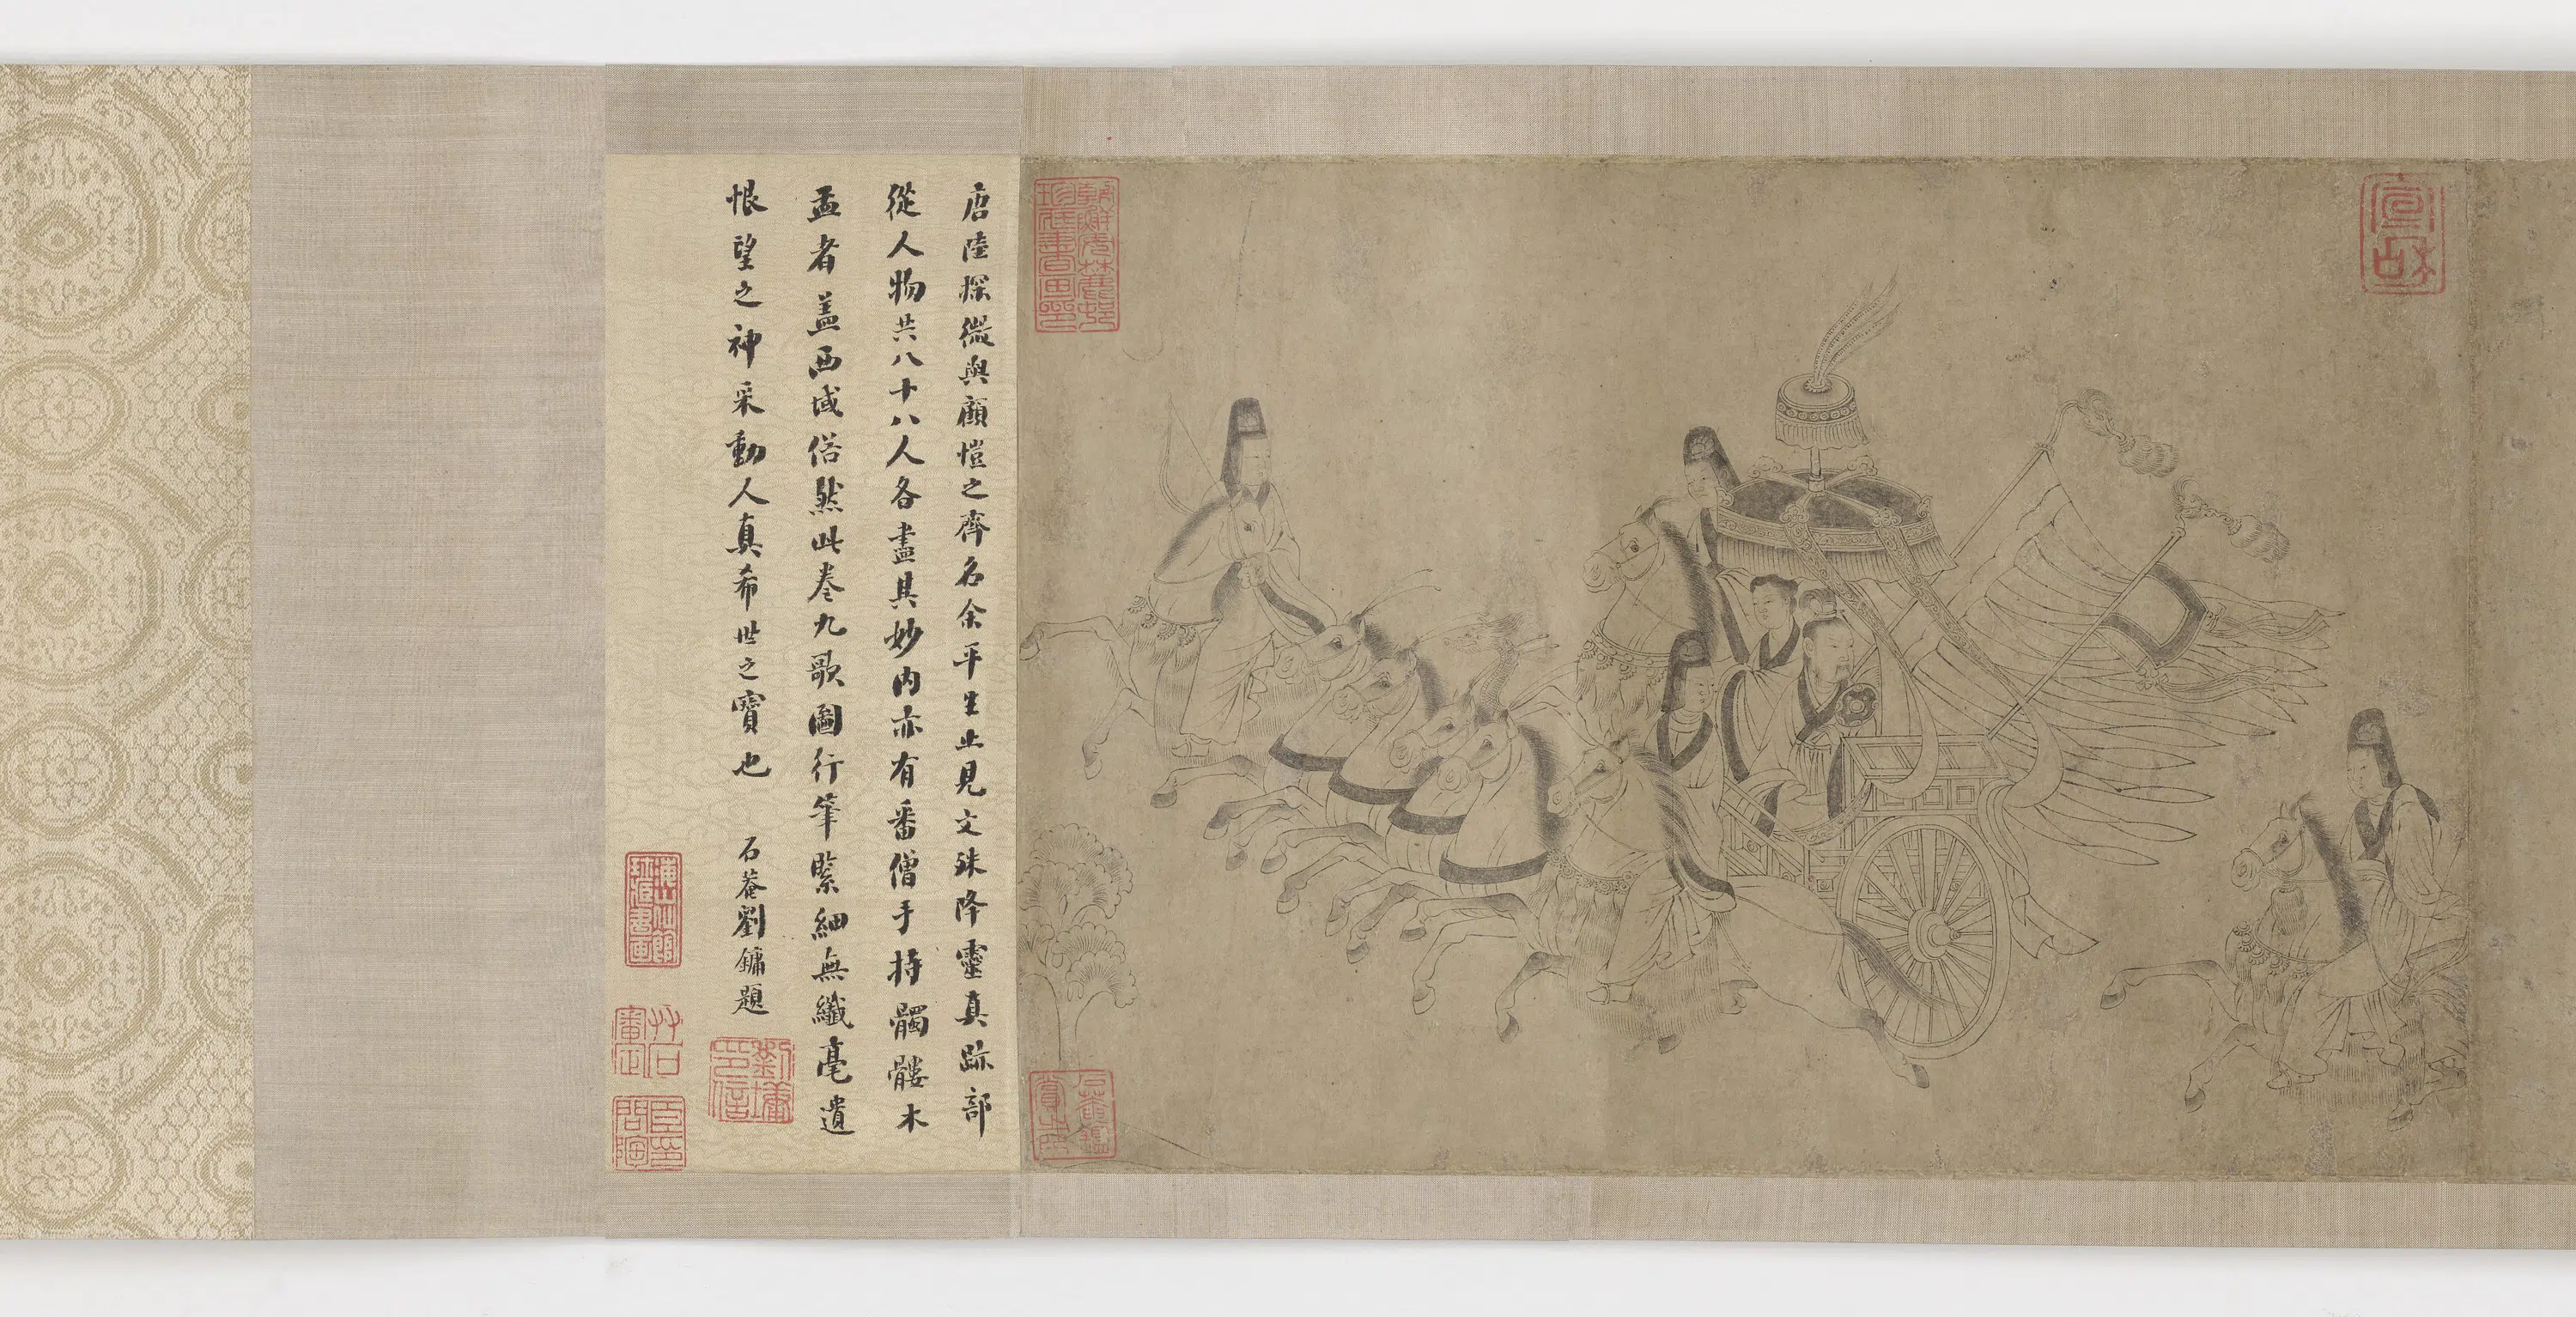 唐陸探微與顧愷之齊名余平生止見文殊降靈真跡部
從人物共八十八人各盡其妙內亦有番僧手持髑髏木
盂者盖西域俗然此卷九歌圖行筆緊細無纖毫遺
恨望之神采動人真希世之寶也
石菴劉鏞題
宣和
劉墉印信